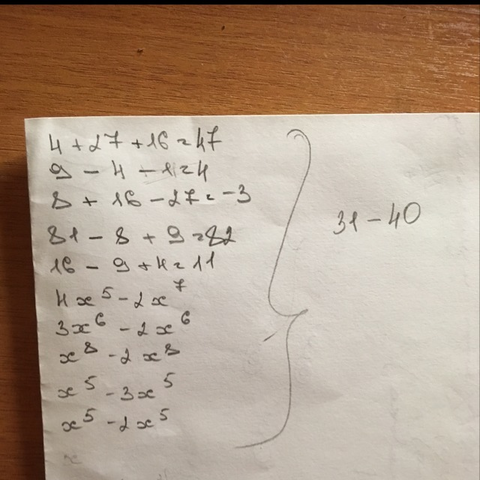 4 + 27 + 16 = 47
9 - 4 - 1 = 4
8 + 16 - 27 = -3
81 - 8 + 9 = 82
16 - 9 + 4 = 11
4x⁵ - 2x⁷
3x⁶ - 2x⁶
x⁸ - 2x⁸
x⁵ - 3x⁵
x⁵ - 2x⁵
31 - 40